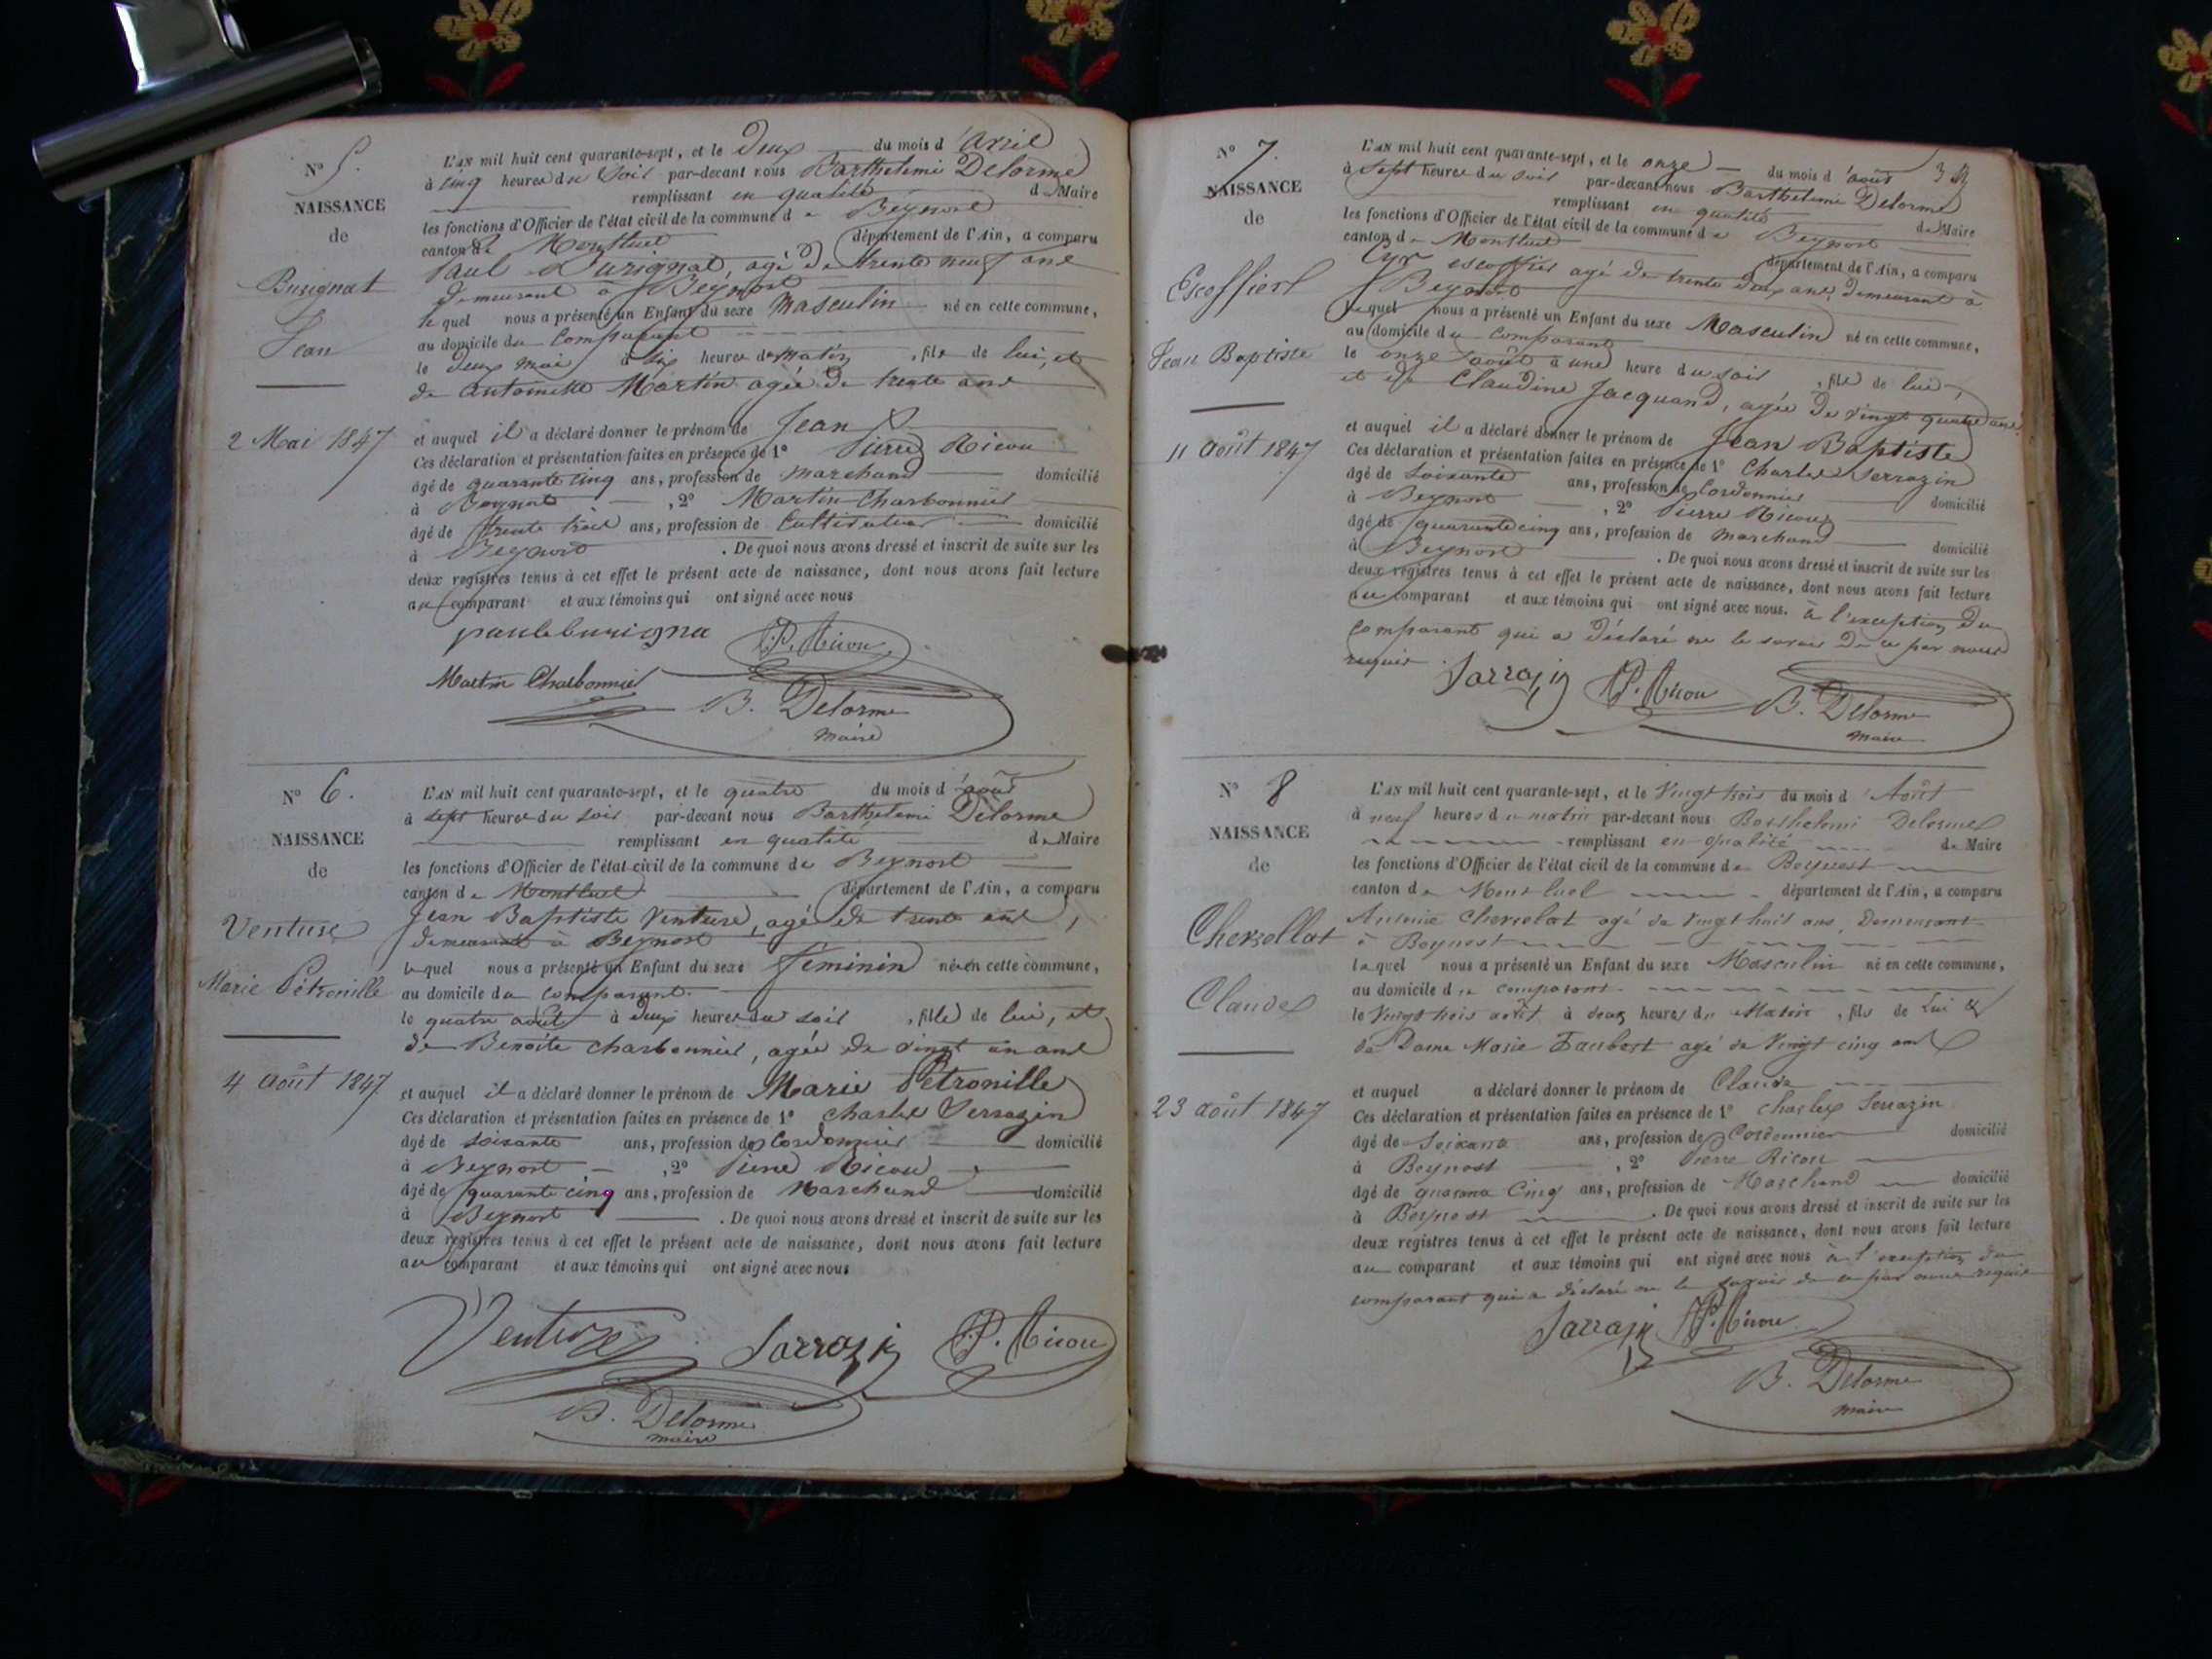 N° 5.
NAISSANCE
de
Burignat
Jean
2 Mai 1847
L'AN mil huit cent quarante-sept, et le Deux du mois d'avril
à cinq heures du soir par-devant nous Barthelemi Delorme
remplissant en qualité de Maire
les fonctions d'Officier de l'état civil de la commune de Beynost
canton de Montluel département de l'Ain, a comparu
Paul Burignat, agé de trente neuf ans
demeurant à Beynost
lequel nous a présenté un Enfant du sexe Masculin né en cette commune,
au domicile du Comparant
le deux mai à six heures du matin, fils de lui, et
de antoinette Martin agée de trente ans
et auquel il a déclaré donner le prénom de Jean
Ces déclaration et présentation faites en présence de 1° Pierre Ricou
âgé de quarante cinq ans, profession de marchand domicilié
à Beynost, 2° Martin Charbonnier
âgé de trente trois ans, profession de Cultivateur domicilié
à Beynost. De quoi nous avons dressé et inscrit de suite sur les
deux registres tenus à cet effet le présent acte de naissance, dont nous avons fait lecture
au comparant et aux témoins qui ont signé avec nous
paul burigna P. Ricou
Martin Charbonnier
B. Delorme
maire
N° 6.
NAISSANCE
de
Venture
Marie Pétronille
4 août 1847
L'AN mil huit cent quarante-sept, et le quatre du mois d'août
à sept heures du soir par-devant nous Barthelemi Delorme
remplissant en qualité de Maire
les fonctions d'Officier de l'état civil de la commune de Beynost
canton de Montluel département de l'Ain, a comparu
Jean Baptiste Venture, agé de trente ans,
demeurant à Beynost
lequel nous a présenté un Enfant du sexe feminin née en cette commune,
au domicile du comparant.
le quatre août à deux heures du soir, fille de lui, et
de Benoite charbonnier, agée de vingt un ans
et auquel il a déclaré donner le prénom de Marie Pétronille
Ces déclaration et présentation faites en présence de 1° charles Serrazin
âgé de soixante ans, profession de Cordonnier domicilié
à Beynost, 2° Pierre Ricou
âgé de quarante cinq ans, profession de Marchand domicilié
à Beynost. De quoi nous avons dressé et inscrit de suite sur les
deux registres tenus à cet effet le présent acte de naissance, dont nous avons fait lecture
au comparant et aux témoins qui ont signé avec nous
Venture Sarrazin P. Ricou
B. Delorme
maire
N° 7.
NAISSANCE
de
Escoffier
Jean Baptiste
11 août 1847
L'AN mil huit cent quarante-sept, et le onze du mois d'août
à sept heures du soir par-devant nous Barthelemi Delorme
remplissant en qualité de Maire
les fonctions d'Officier de l'état civil de la commune de Beynost
canton de Montluel département de l'Ain, a comparu
Cyr escoffier agé de trente deux ans, demeurant à
Beynost
lequel nous a présenté un Enfant du sexe Masculin né en cette commune,
au domicile du comparant
le onze août à une heure du soir, fils de lui,
et de Claudine Jacquand, agée de vingt quatre ans
et auquel il a déclaré donner le prénom de Jean Baptiste
Ces déclaration et présentation faites en présence de 1° Charles Serrazin
âgé de soixante ans, profession de Cordonnier domicilié
à Beynost, 2° Pierre Ricou
âgé de quarante cinq ans, profession de marchand domicilié
à Beynost. De quoi nous avons dressé et inscrit de suite sur les
deux registres tenus à cet effet le présent acte de naissance, dont nous avons fait lecture
au comparant et aux témoins qui ont signé avec nous. à l'exception du
comparant qui a déclaré ne le savoir de ce par nous
requis
Sarrazin P. Ricou B. Delorme
maire
N° 8
NAISSANCE
de
Chersollat
Claude
23 août 1847
L'AN mil huit cent quarante-sept, et le Vingt trois du mois d'Août
à neuf heures du matin par-devant nous Barthelemi Delorme
remplissant en qualité de Maire
les fonctions d'Officier de l'état civil de la commune de Beynost
canton de Montluel département de l'Ain, a comparu
Antoine Chersolat agé de Vingt huit ans, Demeurant
à Beynost
lequel nous a présenté un Enfant du sexe Masculin né en cette commune,
au domicile du comparant
le Vingt trois août à deux heures du Matin, fils de Lui &
de Dame Marie Faubert agé de Vingt cinq ans
et auquel a déclaré donner le prénom de Claude
Ces déclaration et présentation faites en présence de 1° Charles Serrazin
âgé de Soixante ans, profession de Cordonnier domicilié
à Beynost, 2° Pierre Ricou
âgé de quarante Cinq ans, profession de Marchand domicilié
à Beynost. De quoi nous avons dressé et inscrit de suite sur les
deux registres tenus à cet effet le présent acte de naissance, dont nous avons fait lecture
au comparant et aux témoins qui ont signé avec nous à l'exception du
comparant qui a déclaré ne le savoir de ce par nous requis
Sarrazin P. Ricou
B. Delorme
maire